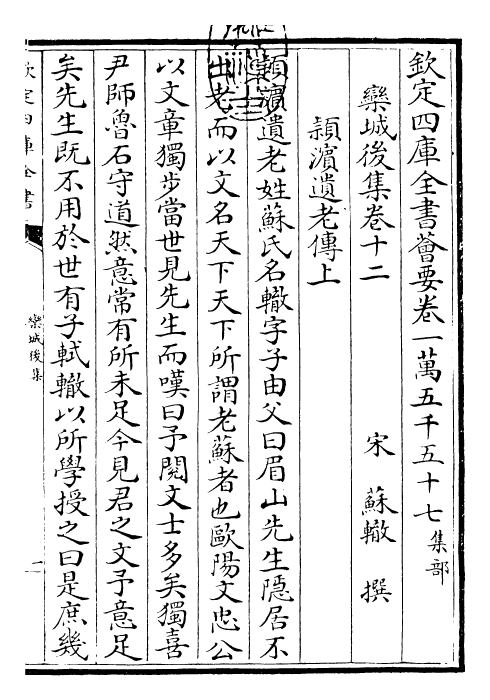 欽定四庫全書薈要卷一萬五千五十七 集部
欒城後集卷十二 宋 蘇轍 撰
潁濵遺老傳上
潁濵遺老姓蘇氏名轍字子由父曰眉山先生隱居不
出老而以文名天下天下所謂老蘇者也歐陽文忠公
以文章獨步當世見先生而嘆曰予閱文士多矣獨喜
尹師魯石守道然意常有所未足今見君之文予意足
矣先生既不用於世有子軾轍以所學授之曰是庶幾
欽定四庫全書
欒城後集